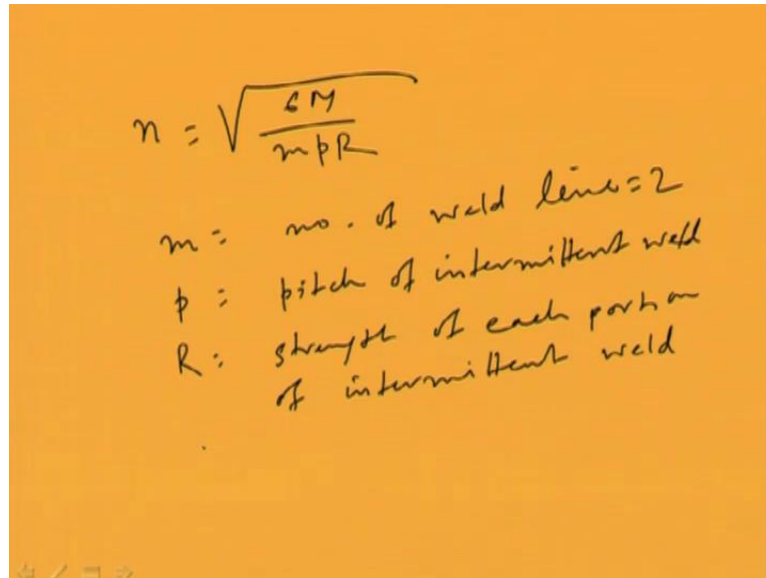 n = √(6M / mpR)
m = no. of weld line = 2
p = pitch of intermittent weld
R = strength of each portion
of intermittent weld